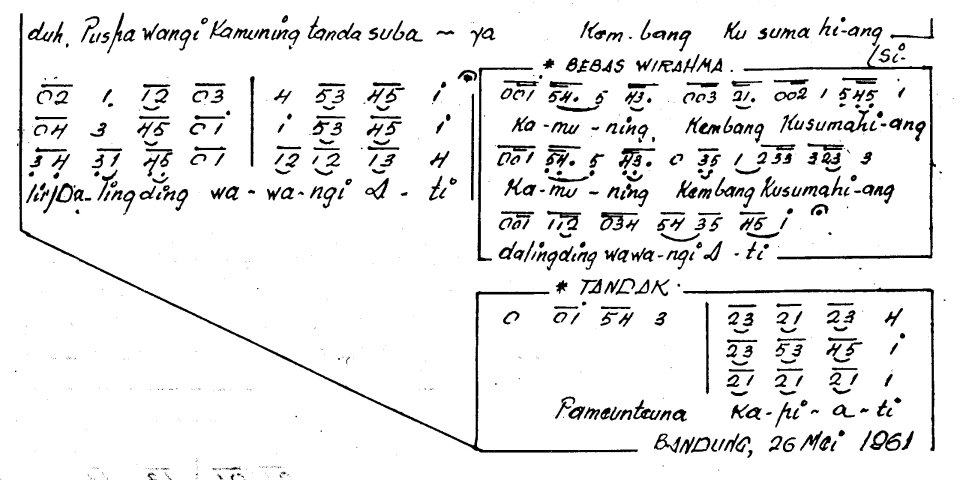 duh, Puspa wangi Kamuning tanda suba ~ ya Kem-bang Ku suma hi-ang
(Si-
02 1. 12 03 | 4 53 45 i
04 3 45 01 | i 53 45 i
34 31 45 01 | 12 12 13 4
lir) Da-lingding wa-wa-ngi A - ti
* BEBAS WIRAHMA
001 54. 5 43. 003 21. 002 1 545 1
Ka-mu-ning, Kembang Kusumahi-ang
001 54. 5 43. 0 35 1 233 323 3
Ka-mu-ning Kembang Kusumahi-ang
001 112 034 54 35 45 i
dalingding wawa-ngi A-ti
* TANDAK.
0 01 54 3 | 23 21 23 4
23 53 45 i
21 21 21 1
Pameunteuna Ka-pi-a-ti
BANDUNG, 26 Mei 1961